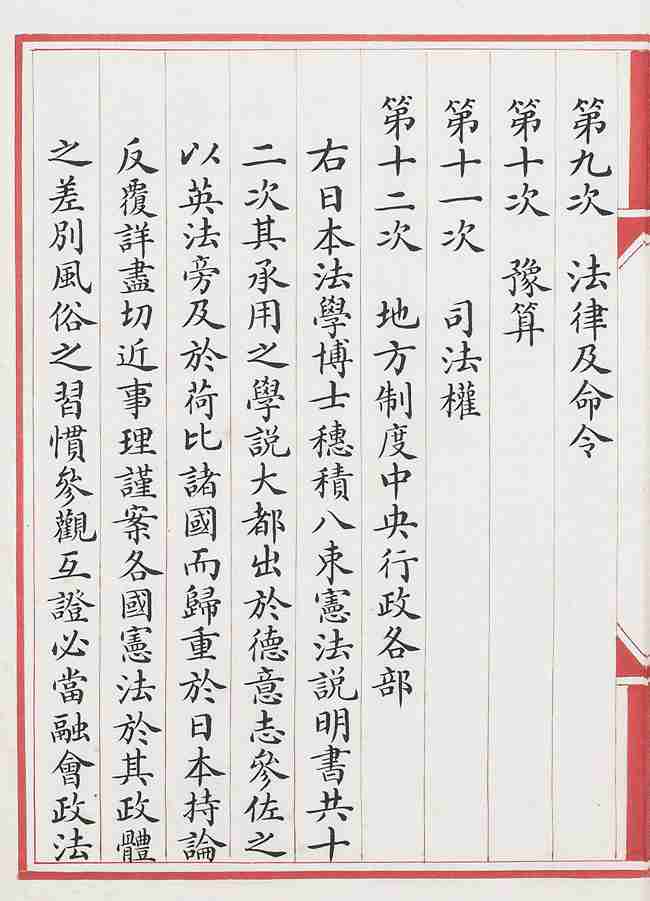 第九次　法律及命令
第十次　豫算
第十一次　司法權
第十二次　地方制度中央行政各部
右日本法學博士穗積八束憲法説明書共十
二次其承用之學説大都出於德意志參佐之
以英法旁及於荷比諸國而歸重於日本持論
反覆詳盡切近事理謹案各國憲法於其政體
之差別風俗之習慣參觀互證必當融會政法